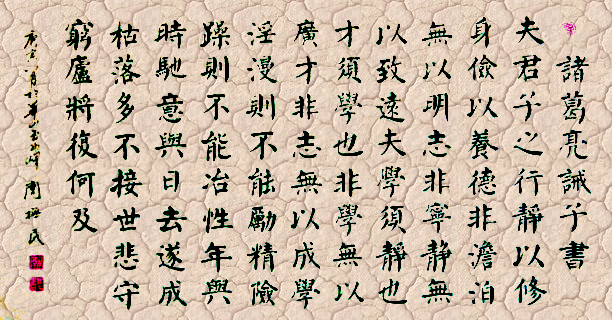 諸葛亮誡子書
夫君子之行靜以修
身儉以養德非澹泊
無以明志非寧靜無
以致遠夫學須靜也
才須學也非學無以
廣才非志無以成學
淫漫則不能勵精險
躁則不能冶性年與
時馳意與日去遂成
枯落多不接世悲守
窮廬將復何及